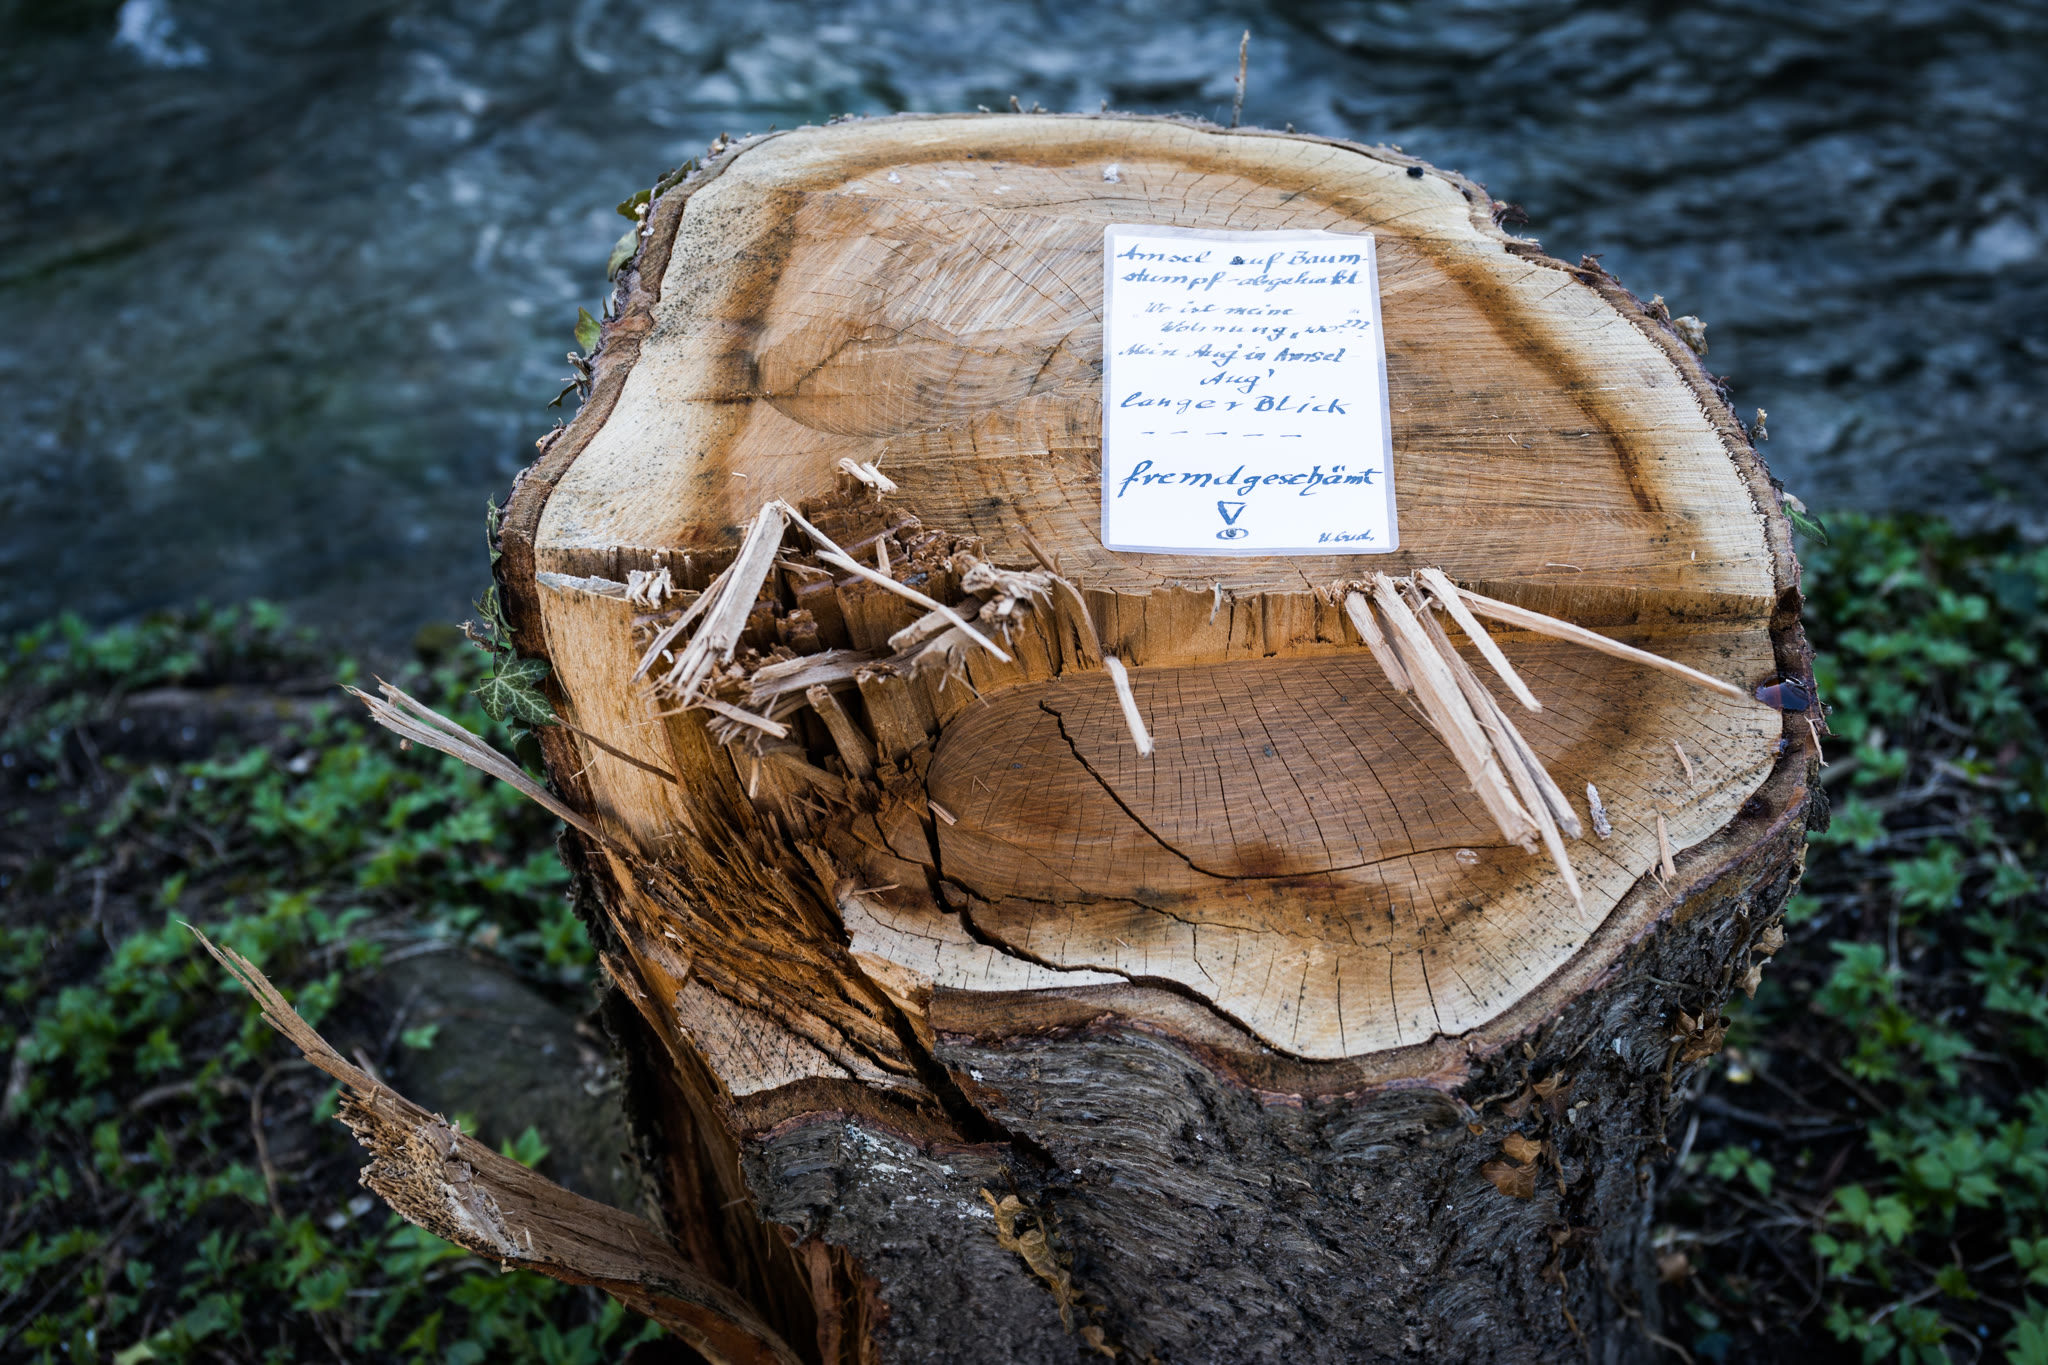 Amsel auf Baum-
stumpf - abgehakt
"Wo ist meine
Wohnung, wo???"
Mein Aug' in Amsel
Aug'
langer Blick
- - - - -
fremdgeschämt